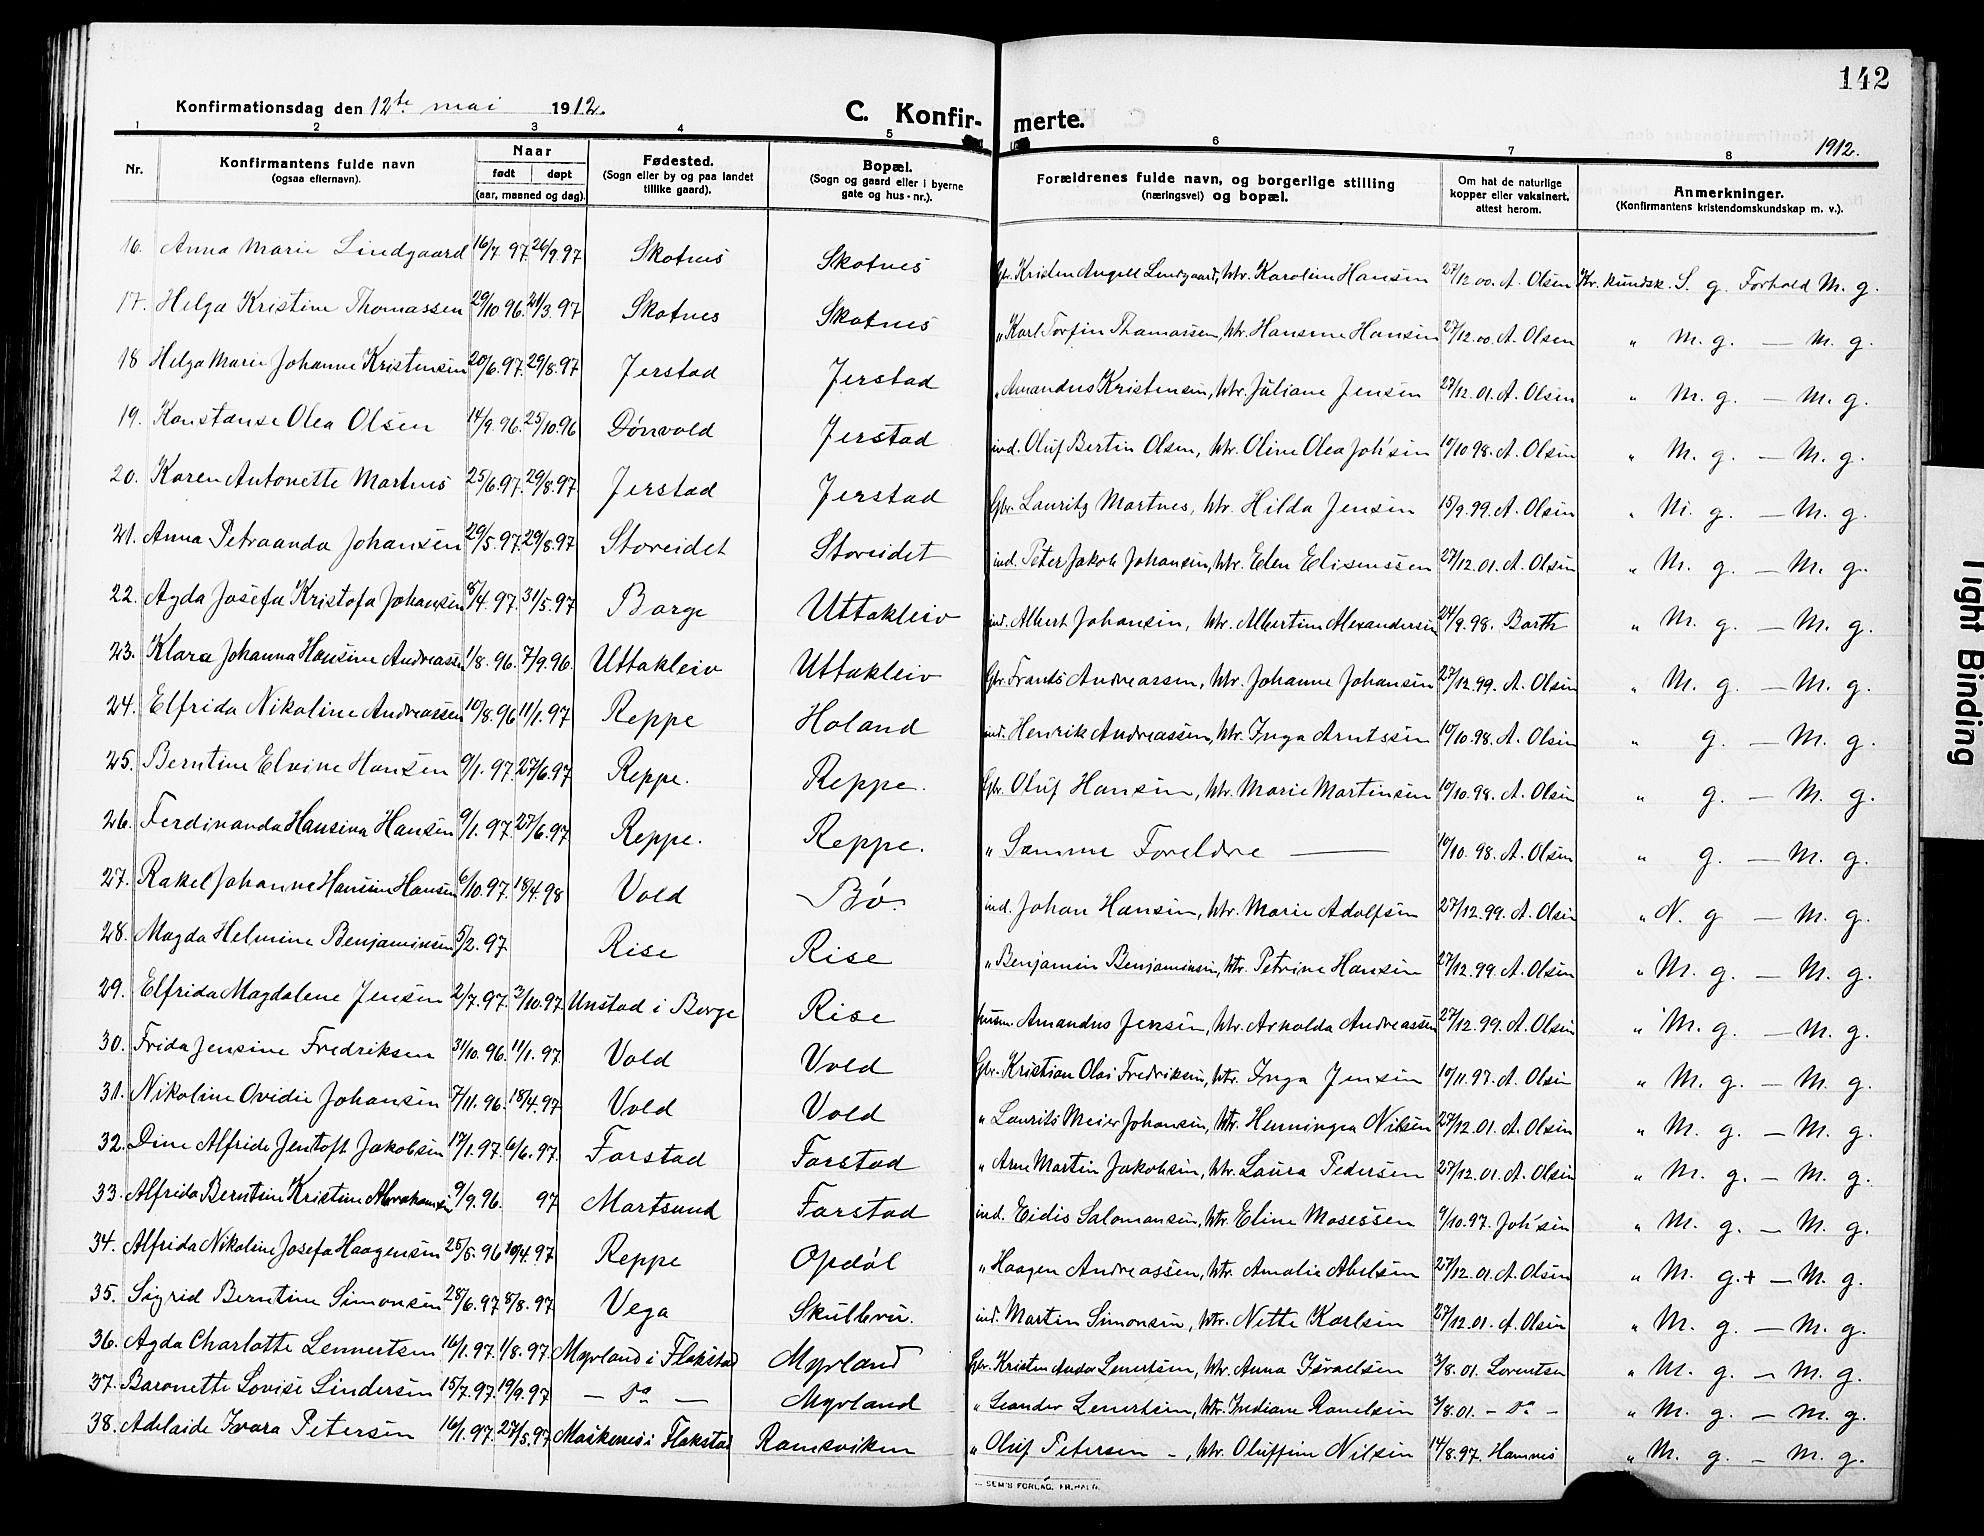 142
Konfirmationsdag den 12te mai 1912.
C. Konfir- merte.
1912.
1 2 3 4 5 6 7 8
Nr. Konfirmantens fulde navn (ogsaa efternavn). Naar født døpt (aar, maaned og dag). Fødested. (Sogn eller by og paa landet tillike gaard). Bopæl. (Sogn og gaard eller i byerne gate og hus-nr.). Forældrenes fulde navn, og borgerlige stilling (næringsvei) og bopæl. Om hat de naturlige kopper eller vaksinert, attest herom. Anmerkninger. (Konfirmantens kristendomskundskap m. v.).
16. Anna Marie Lindgaard 16/7 97. 26/9.97 Skotnes Skotnes Gbr. Kristen Angell Lindgaard, htr. Karoline Hansen 27/12.00. A. Olsen Kr. kundsk. S. g. Forhold M. g.
17. Helga Kristine Thomassen 29/10 96. 21/3.97 Skotnes Skotnes „ Karl Torfin Thomassen, htr. Hansine Hansen 27/12.00. A. Olsen „ M. g. — M. g.
18 Helga Marie Johanne Kristensen 20/6.97. 29/8.97 Jerstad Jerstad „ Amandus Kristensen, htr. Juliane Jensen 27/12.01. A. Olsen „ M. g. — M. g.
19. Konstanse Olea Olsen 14/9.96. 25/10.96 Dønvold Jerstad ind. Oluf Bertin Olsen, htr. Oline Olea Joh'sen 10/10.98. A. Olsen „ M. g. — M. g.
20. Karen Antonette Martnes 25/6.97. 29/8.97 Jerstad Jerstad Gbr. Lauritz Martnes, htr. Hilda Jensen 15/9.99. A. Olsen „ M. g. — M. g.
21. Anna Petraanda Johansen 29/5.97. 29/8.97 Storeidet Storeidet ind. Peter Jakob Johansen, htr. Elen Eliseussen 27/12.01. A. Olsen „ M. g. — M. g.
22. Agda Josefa Kristofa Johansen 8/4.97. 31/5.97 Borge Uttakleiv ind. Albert Johansen, htr. Albertine Alexandersen 24/9.98. Barth „ M. g. — M. g.
23. Klara Johanna Hansine Andreassen 1/8.96. 7/9.96. Uttakleiv Uttakleiv Gbr. Frants Andreassen, htr. Johanne Johansen 27/12.99. A. Olsen „ M. g. — M. g.
24. Elfrida Nikoline Andreassen 10/8.96 11/1.97 Reppe Holand ind. Henrik Andreassen, htr. Inga Arntssen 10/10.98. A. Olsen „ g. — M. g.
25. Berntine Elvine Hansen 9/1.97. 27/6.97 Reppe. Reppe. Gbr. Oluf Hansen, htr. Marie Martinsen 10/10.98. A. Olsen „ g. — M. g.
26. Ferdinanda Hansina Hansen 9/1.97. 27/6.97 Reppe. Reppe. „ Samme Foreldre — 10/10.98. A. Olsen „ g. — M. g.
27. Rakel Johanne Hansine Hansen 6/10.97. 18/4.98 Vold Bø. ind. Johan Hansen, htr. Marie Adolfsen 27/12.99. A. Olsen „ N. g — M. g.
28. Magda Helmine Benjaminsen 5/2.97 Rise Rise „ Benjamin Benjaminsen, htr. Petrine Hansen 27/12.99. A. Olsen „ M. g. — M. g.
29. Elfrida Magdalene Jensen 2/7.97. 3/10.97. Unstad i Borge Rise husm. Amandus Jensen, htr. Arnolda Andreassen 27/12.99. A. Olsen „ M. g. — M. g.
30. Frida Jensine Fredriksen 31/10.96. 11/1.97 Vold Vold Gbr. Kristian Olai Fredriksen, htr. Inga Jensen 10/11.97. A. Olsen „ M. g. — M. g.
31. Nikoline Ovidie Johansen 7/11.96. 18/4.97 Vold Vold „ Laurits Meier Johansen, htr. Henningea Nilsen 27/12.01. A. Olsen „ M. g. — M. g.
32. Dine Alfride Jentoft Jakobsen 17/1.97. 6/6.97. Farstad Farstad „ Arne Martin Jakobsen, htr. Laura Pedersen 27/12.01. A. Olsen „ M. g. — M. g.
33. Alfrida Berntine Kristine Abrahamsen 9/9.96. 97 Mortsund Farstad ind. Eidis Salomonsen, htr. Eline Mosessen 9/10.97. Joh'sen „ M. g. — M. g.
34. Alfrida Nikoline Josefa Haagensen 25/5.96 10/4.97 Reppe Opdøl „ Haagen Andreassen, htr. Amalie Abelsen 27/12.01. A. Olsen „ M. g.+ — M. g.
35. Sigrid Berntine Simonsen 28/6.97. 8/8.97 Vega ind. Martin Simonsen, htr. Nette Karlsen 27/12.01. A. Olsen „ M. g. — M. g.
36. Agda Charlotte Lennertsen 16/1.97. 1/8.97. Myrland i Flakstad Myrland Gbr. Kristen Andor Lenertsen, htr. Anna Israelsen 3/8.01. Lorentsen „ M. g. — M. g.
37. Baronette Lovise Lindersen 15/7.97. 19/9.97 — do — Myrland „ Leander Lenertsen, htr. Indiane Ranelsen 3/8.01. — do — „ M. g. — M. g.
38. Adelaide Ivara Petersen 16/1.97. 27/5.97 Moskenes i Flakstad Ramsviken „ Oluf Petersen —, htr. Oluffine Nilsen 14/8.97. Hamnes „ M. g. — M. g.
SEM'S FORLAG, FR.HALD.
Tight Binding